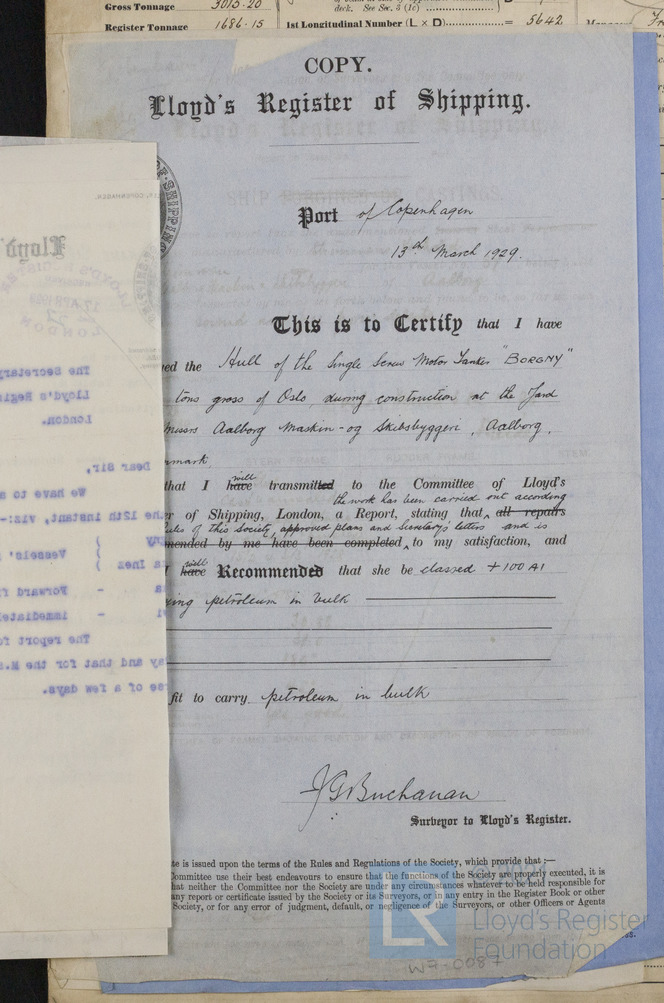 Gross Tonnage 3015.20 deck. See Sec. 3 (1c)
Register Tonnage 1686.15 1st Longitudinal Number (L × D) = 5642
COPY.
Lloyd's Register of Shipping.
Port of Copenhagen
13th March 1929.
This is to Certify that I have
ed the Hull of the Single Screw Motor Tanker "BORGNY"
tons gross of Oslo, during construction at the Yard
Messrs Aalborg Maskin-og Skibsbyggeri, Aalborg,
nmark,
will
that I have transmitted to the Committee of Lloyd's
the work has been carried out according
r of Shipping, London, a Report, stating that all repairs
Rules of this Society, approved plans and Secretary's letters and is
mended by me have been completed, to my satisfaction, and
will
have Recommended that she be classed + 100 A1
ying petroleum in bulk
fit to carry petroleum in bulk
J G Buchanan
Surveyor to Lloyd's Register.
te is issued upon the terms of the Rules and Regulations of the Society, which provide that :—
Committee use their best endeavours to ensure that the functions of the Society are properly executed, it is
hat neither the Committee nor the Society are under any circumstances whatever to be held responsible for
any report or certificate issued by the Society or its Surveyors, or in any entry in the Register Book or other
Society, or for any error of judgment, default, or negligence of the Surveyors, or other Officers or Agents
LR
Lloyd's Register
Foundation
W7-0087
The Secretary
Lloyd's Regis
London.
Dear Sir,
We have to a
the 12th instant, viz:-
Vessels'
Inez
Forward f
immediatel
The report fo
ay and that for the M.S.
se of a few days.